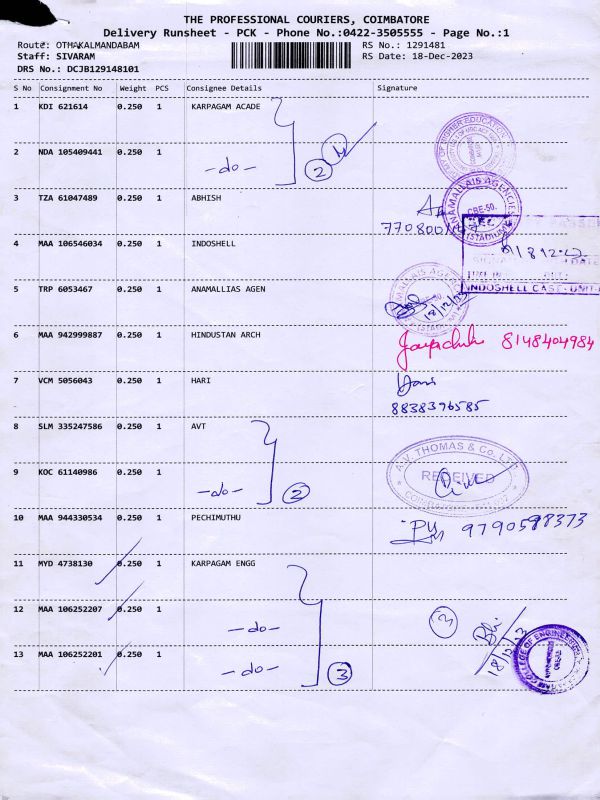 THE PROFESSIONAL COURIERS, COIMBATORE
Delivery Runsheet - PCK - Phone No.:0422-3505555 - Page No.:1
Route: OTMAKALMANDABAM RS No.: 1291481
Staff: SIVARAM RS Date: 18-Dec-2023
DRS No.: DCJB129148101
S No Consignment No Weight PCS Consignee Details Signature
1 KDI 621614 0.250 1 KARPAGAM ACADE
2 NDA 105409441 0.250 1 -do- 2
3 TZA 61047489 0.250 1 ABHISH
ANAMALLAIS AGENCIES
CBE-50.
4 MAA 106546034 0.250 1 INDOSHELL
INDOSHELL CAST
5 TRP 6053467 0.250 1 ANAMALLIAS AGEN 18/12/23
6 MAA 942999887 0.250 1 HINDUSTAN ARCH 8148404984
7 VCM 5056043 0.250 1 HARI Hari
8838396585
8 SLM 335247586 0.250 1 AVT
A.V. THOMAS & Co. LTD
RECEIVED
9 KOC 61140986 0.250 1 -do- 2
10 MAA 944330534 0.250 1 PECHIMUTHU 9790598373
11 MYD 4738130 0.250 1 KARPAGAM ENGG
12 MAA 106252207 0.250 1 -do- 3
13 MAA 106252201 0.250 1 -do- 3 18/12/23
COLLEGE OF ENGINEERING